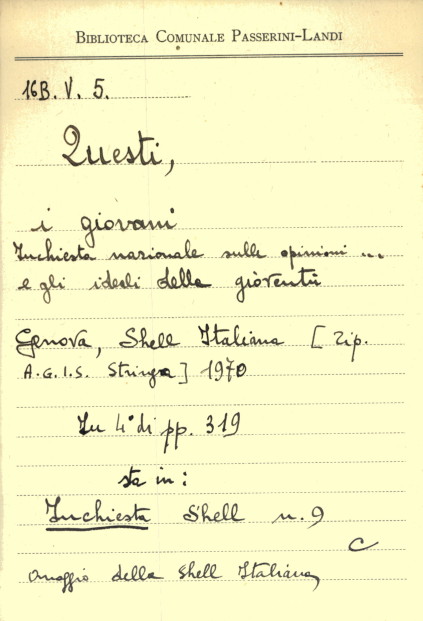 BIBLIOTECA COMUNALE PASSERINI-LANDI
16B. V. 5.
Questi,
i giovani
Inchiesta nazionale sulle opinioni ...
e gli ideali della gioventù
Genova, Shell Italiana [Tip.
A.G.I.S. Stringa] 1970
In 4° di pp. 319
sta in:
Inchiesta Shell n. 9
C
omaggio della Shell Italiana